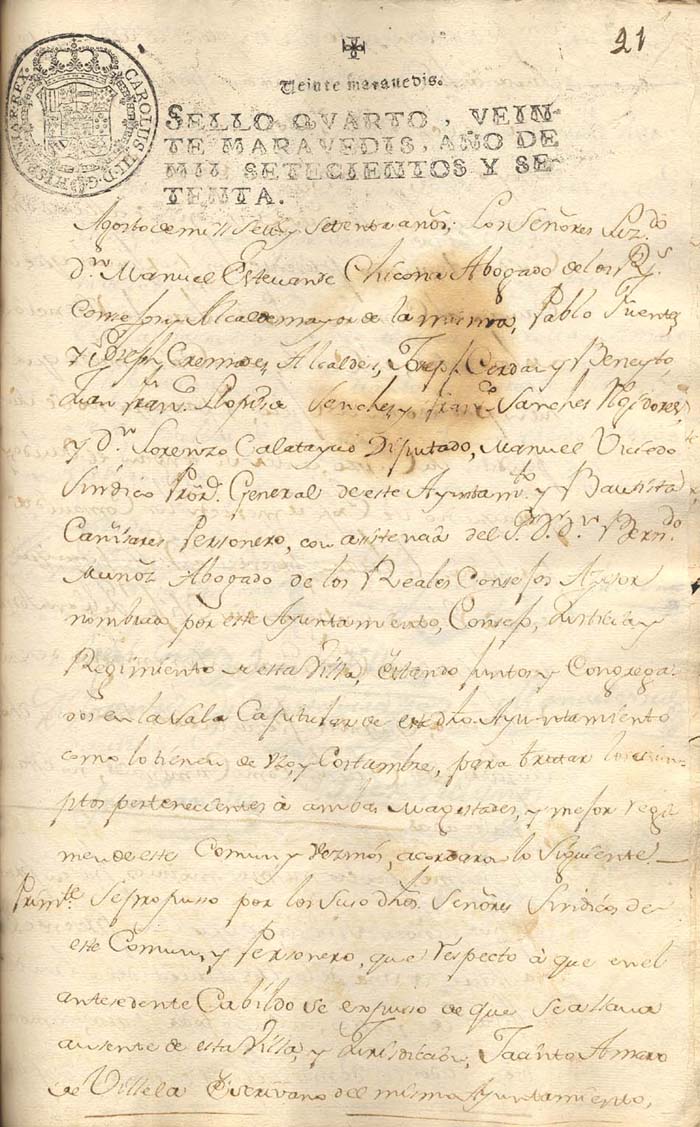 21
CAROLUS III D.G. HISPANIAR. REX.
Veinte maravedis.
SELLO QVARTO, VEIN-
TE MARAVEDIS, AÑO DE
MIL SETECIENTOS Y SE-
TENTA.
Agosto de mill Setts. y Setenta años. Los Señores
dn. Manuel Estevande Chicona Abogado de los Rs.
Consejos y Alcalde mayor de la misma, Pablo Fuentes
y Joseph Cremades Alcaldes, Joseph Cerdan y Beneyto
Juan franco. Sanches y franco. Sanches Rejidores,
y Dn. Lorenzo Calatayud Diputado, Manuel Vicedo
Sindico Pror. General de este Ayuntamto. y Bautista
Cañisares Personero, con asistencia del Sr. Dr. Dn. Berndo.
Muñoz Abogado de los Reales Consejos Azesor
nombrado por este Ayuntamiento, Consejo, Justicia y
Regimiento de esta Villa, estando juntos y Congrega-
dos en la Sala Capitular de este dho. Ayuntamiento
como lo tienen de vzo, y Costumbre, para tratar los asum-
ptos pertenecientes à ambas Magestades, y mejor regi-
men de este Comun y vezinos, acordaron lo Siguiente
Primte. Se propusso por los Suso dhos. Señores Sindicos de
este Comun, y Personero, que respecto à que en el
antesedente Cabildo se expusso de que se allava
ausente de esta Villa, y Jurisdicion, Jacinto Amaro
de Villela Escrivano del mismo Ayuntamiento,